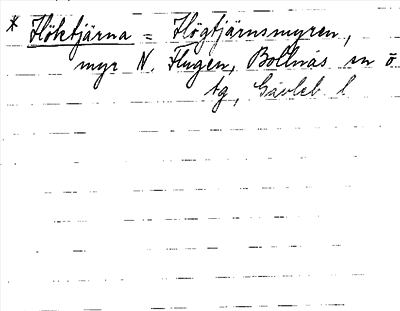 * Höktjärna = Högtjärnsmyren,
myr N. Flugen, Bollnäs sn o
tg, Gävleb. l